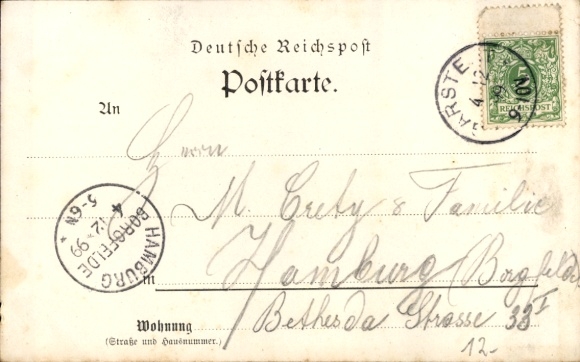 Deutsche Reichspost
Postkarte.
An
Herrn
M. Crety & Familie
in Hamburg Borgfelde
Bethesda Strasse 33 I
12-
Wohnung
(Straße und Hausnummer.)
REICHSPOST
4 12 99
HAMBURG
BORGFELDE
4 12 99
5-6N